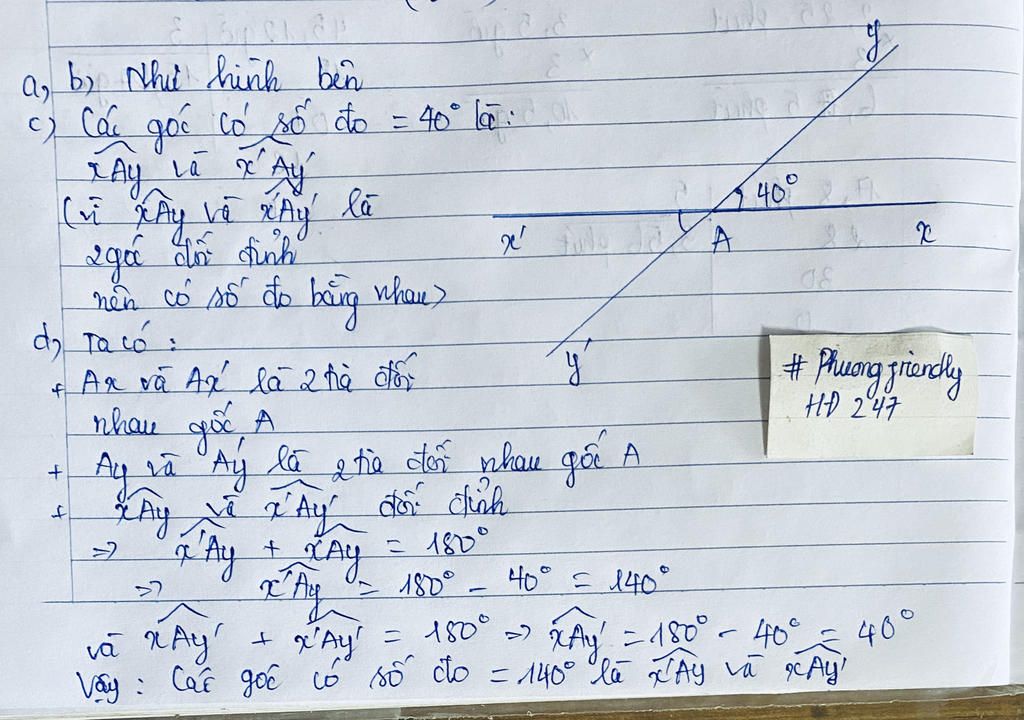 a, b, Như hình bên
c) Các góc có số đo = 40° là:
xAy và x'Ay'
(vì xAy và x'Ay' là
2 góc đối đỉnh
nên có số đo bằng nhau)
d, Ta có :
+ Ax và Ax' là 2 tia đối
nhau gốc A
+ Ay và Ay' là 2 tia đối nhau gốc A
+ xAy và x'Ay' đối đỉnh
=> x'Ay + xAy = 180°
=> x'Ay = 180° - 40° = 140°
và xAy' + x'Ay' = 180° => xAy' = 180° - 40° = 40°
Vậy : Các góc có số đo = 140° là x'Ay và xAy'
y
40°
x'
A
x
y'
# Phuongfriendly
HĐ 247